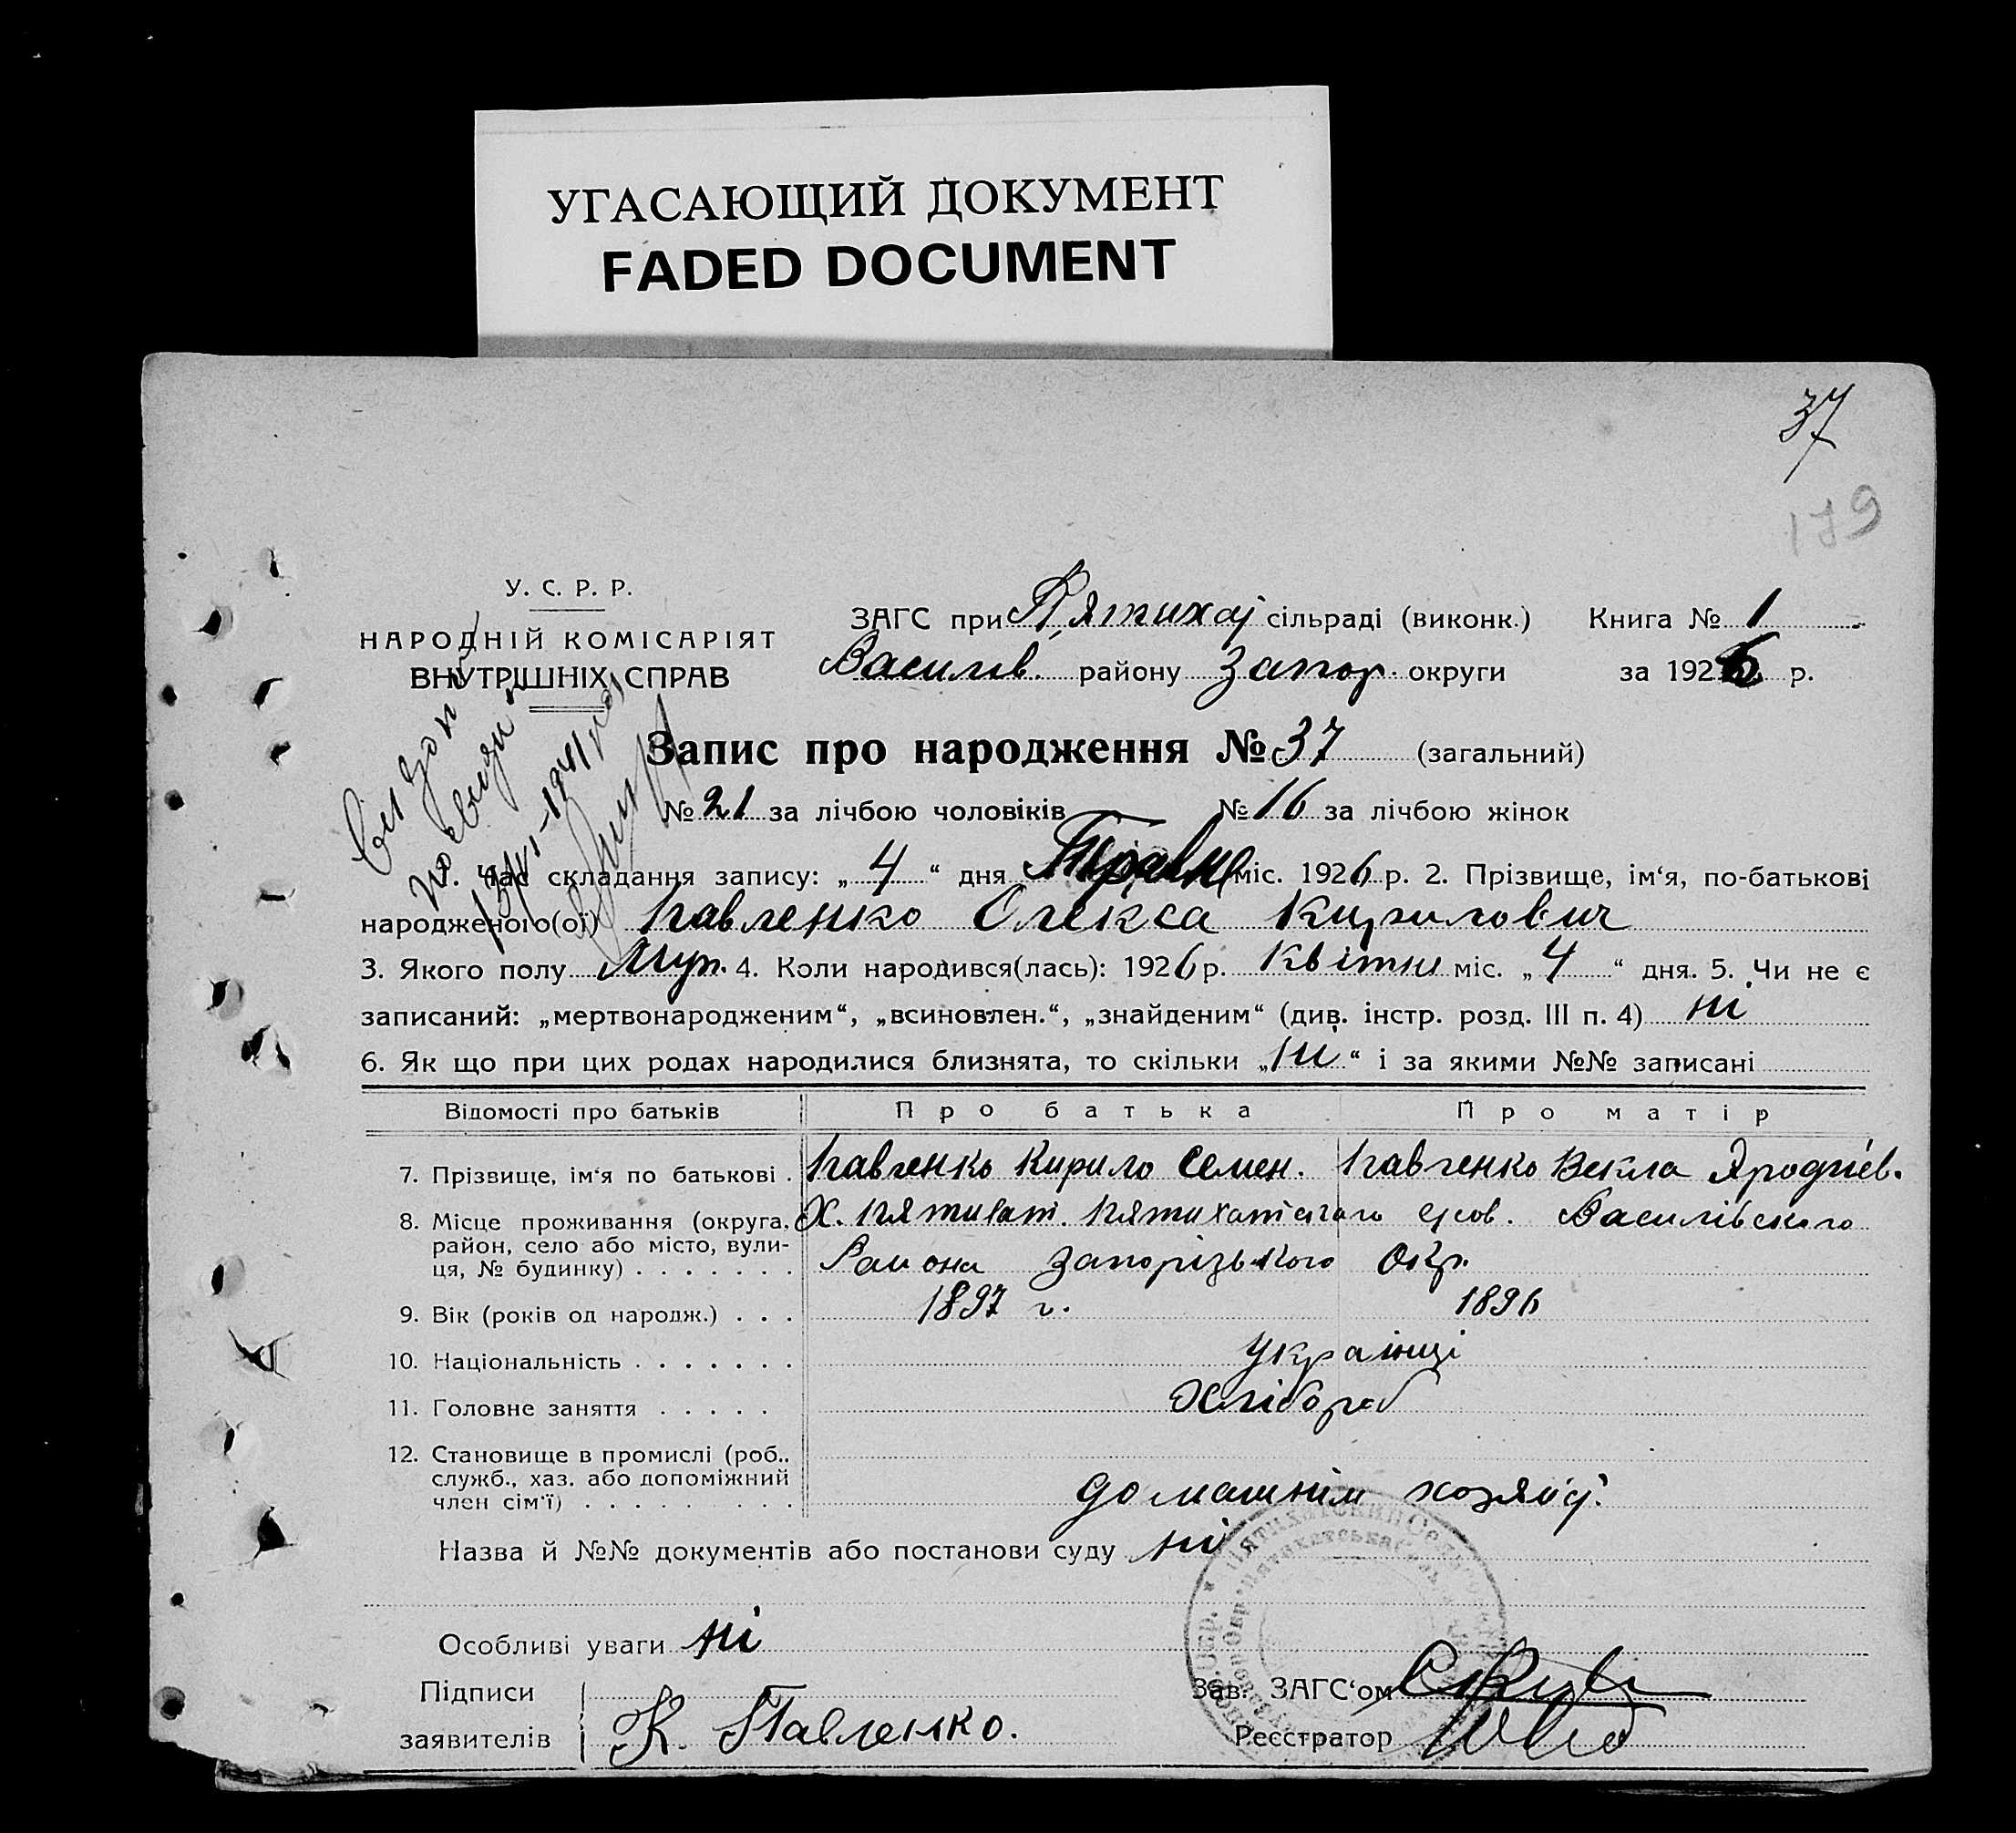 УГАСАЮЩИЙ ДОКУМЕНТ
FADED DOCUMENT
37
179
У. С. Р. Р.
НАРОДНІЙ КОМІСАРІЯТ
ВНУТРІШНІХ СПРАВ
ЗАГС при П'ятихат сільраді (виконк.) Книга № 1
Василів. району Запор. округи за 1926 р.
Запис про народження № 37 (загальний)
№ 21 за лічбою чоловіків № 16 за лічбою жінок
1. Час складання запису: „4“ дня Травня міс. 1926 р. 2. Прізвище, ім‘я, по-батькові
народженого(ої) Павленко Олекса Кирилович
3. Якого полу Муж. 4. Коли народився(лась): 1926 р. Квітня міс. „4“ дня. 5. Чи не є
записаний: „мертвонародженим“, „всиновлен.“, „знайденим“ (див. інстр. розд. III п. 4) ні
6. Як що при цих родах народилися близнята, то скільки „ні“ і за якими №№ записані
Відомості про батьків Про батька Про матір
7. Прізвище, ім‘я по батькові . Павленко Кирило Семен. Павленко Векла
8. Місце проживання (округа, район, село або місто, вулиця, № будинку) . . . . . . . Х. Пятихат. Пятихатського Василівского
Району Запорізького Окр.
9. Вік (років од народж.) . . . 1897 г. 1896
10. Національність . . . . . . . українці
11. Головне заняття . . . . . Хлібороб
12. Становище в промислі (роб.. служб., хаз. або допоміжний член сім‘ї) . . . . . . . . . домашнім хозяйс.
Назва й №№ документів або постанови суду ні
Особливі уваги ні
Підписи
заявителів К. Павленко.
Зав. ЗАГС‘ом
Реєстратор